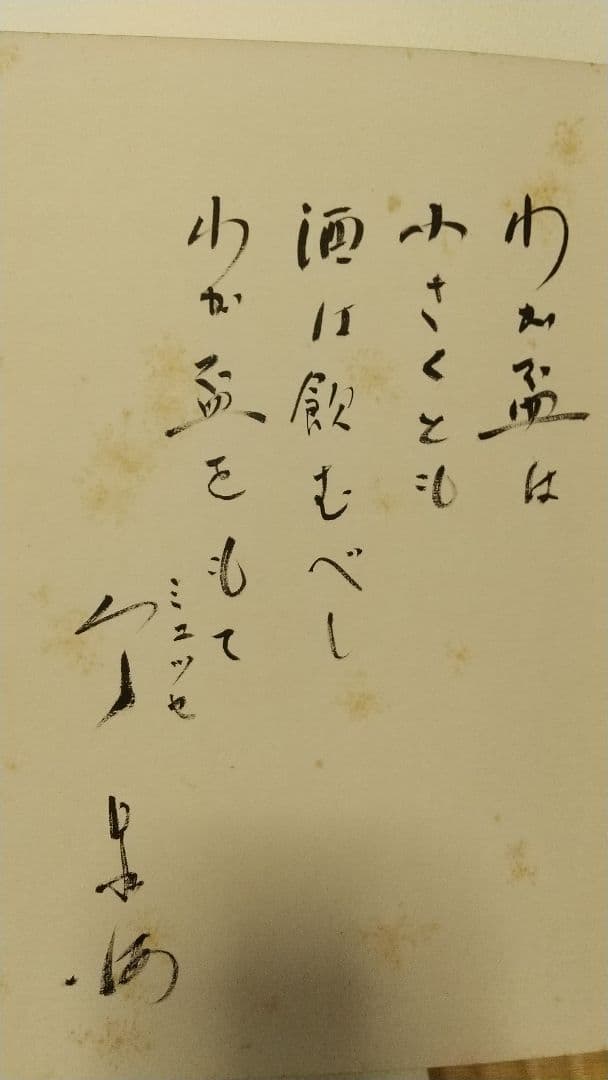 わが盃は
小さくとも
酒は飲むべし
わが盃をもて
ミュッセ